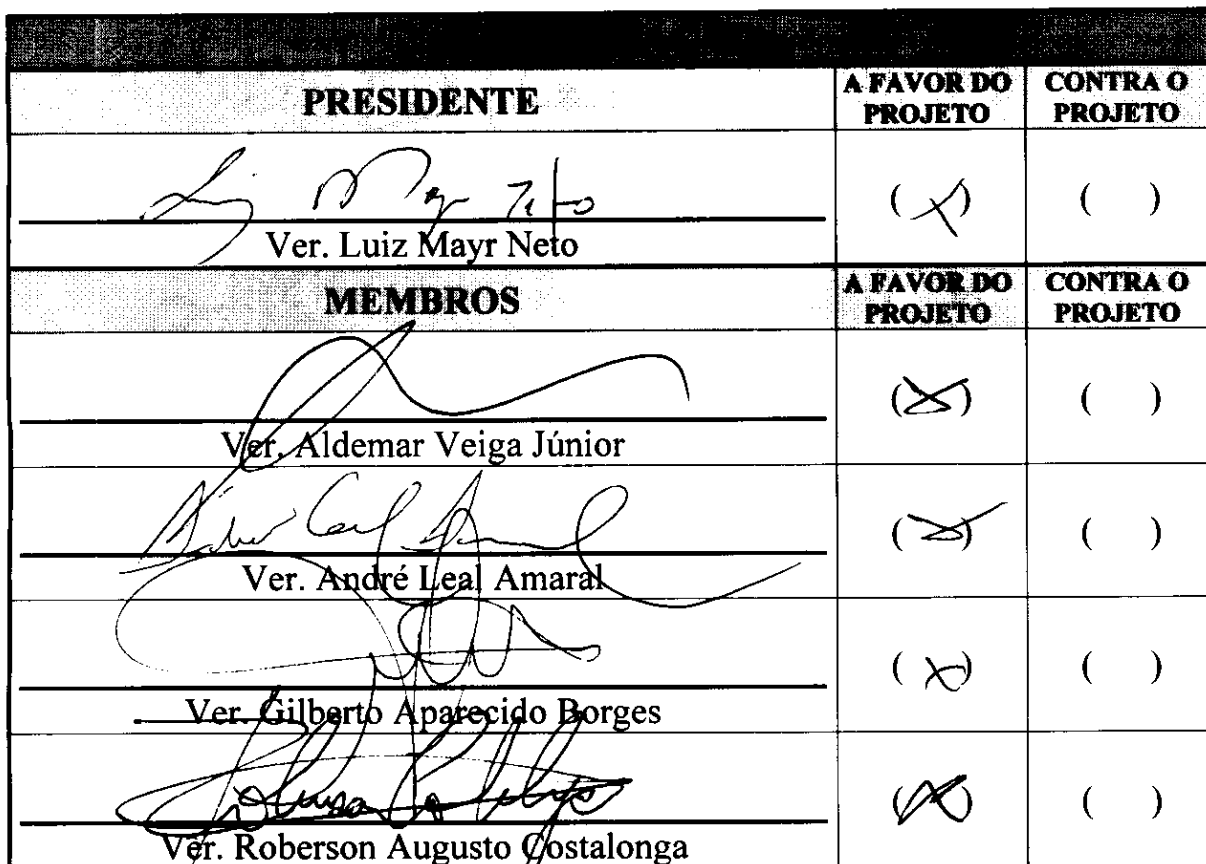 PRESIDENTE A FAVOR DO PROJETO CONTRA O PROJETO
Luiz Mayr Neto (X) ( )
Ver. Luiz Mayr Neto
MEMBROS A FAVOR DO PROJETO CONTRA O PROJETO
(X) ( )
Ver. Aldemar Veiga Júnior
(X) ( )
Ver. André Leal Amaral
(X) ( )
Ver. Gilberto Aparecido Borges
(X) ( )
Ver. Roberson Augusto Costalonga